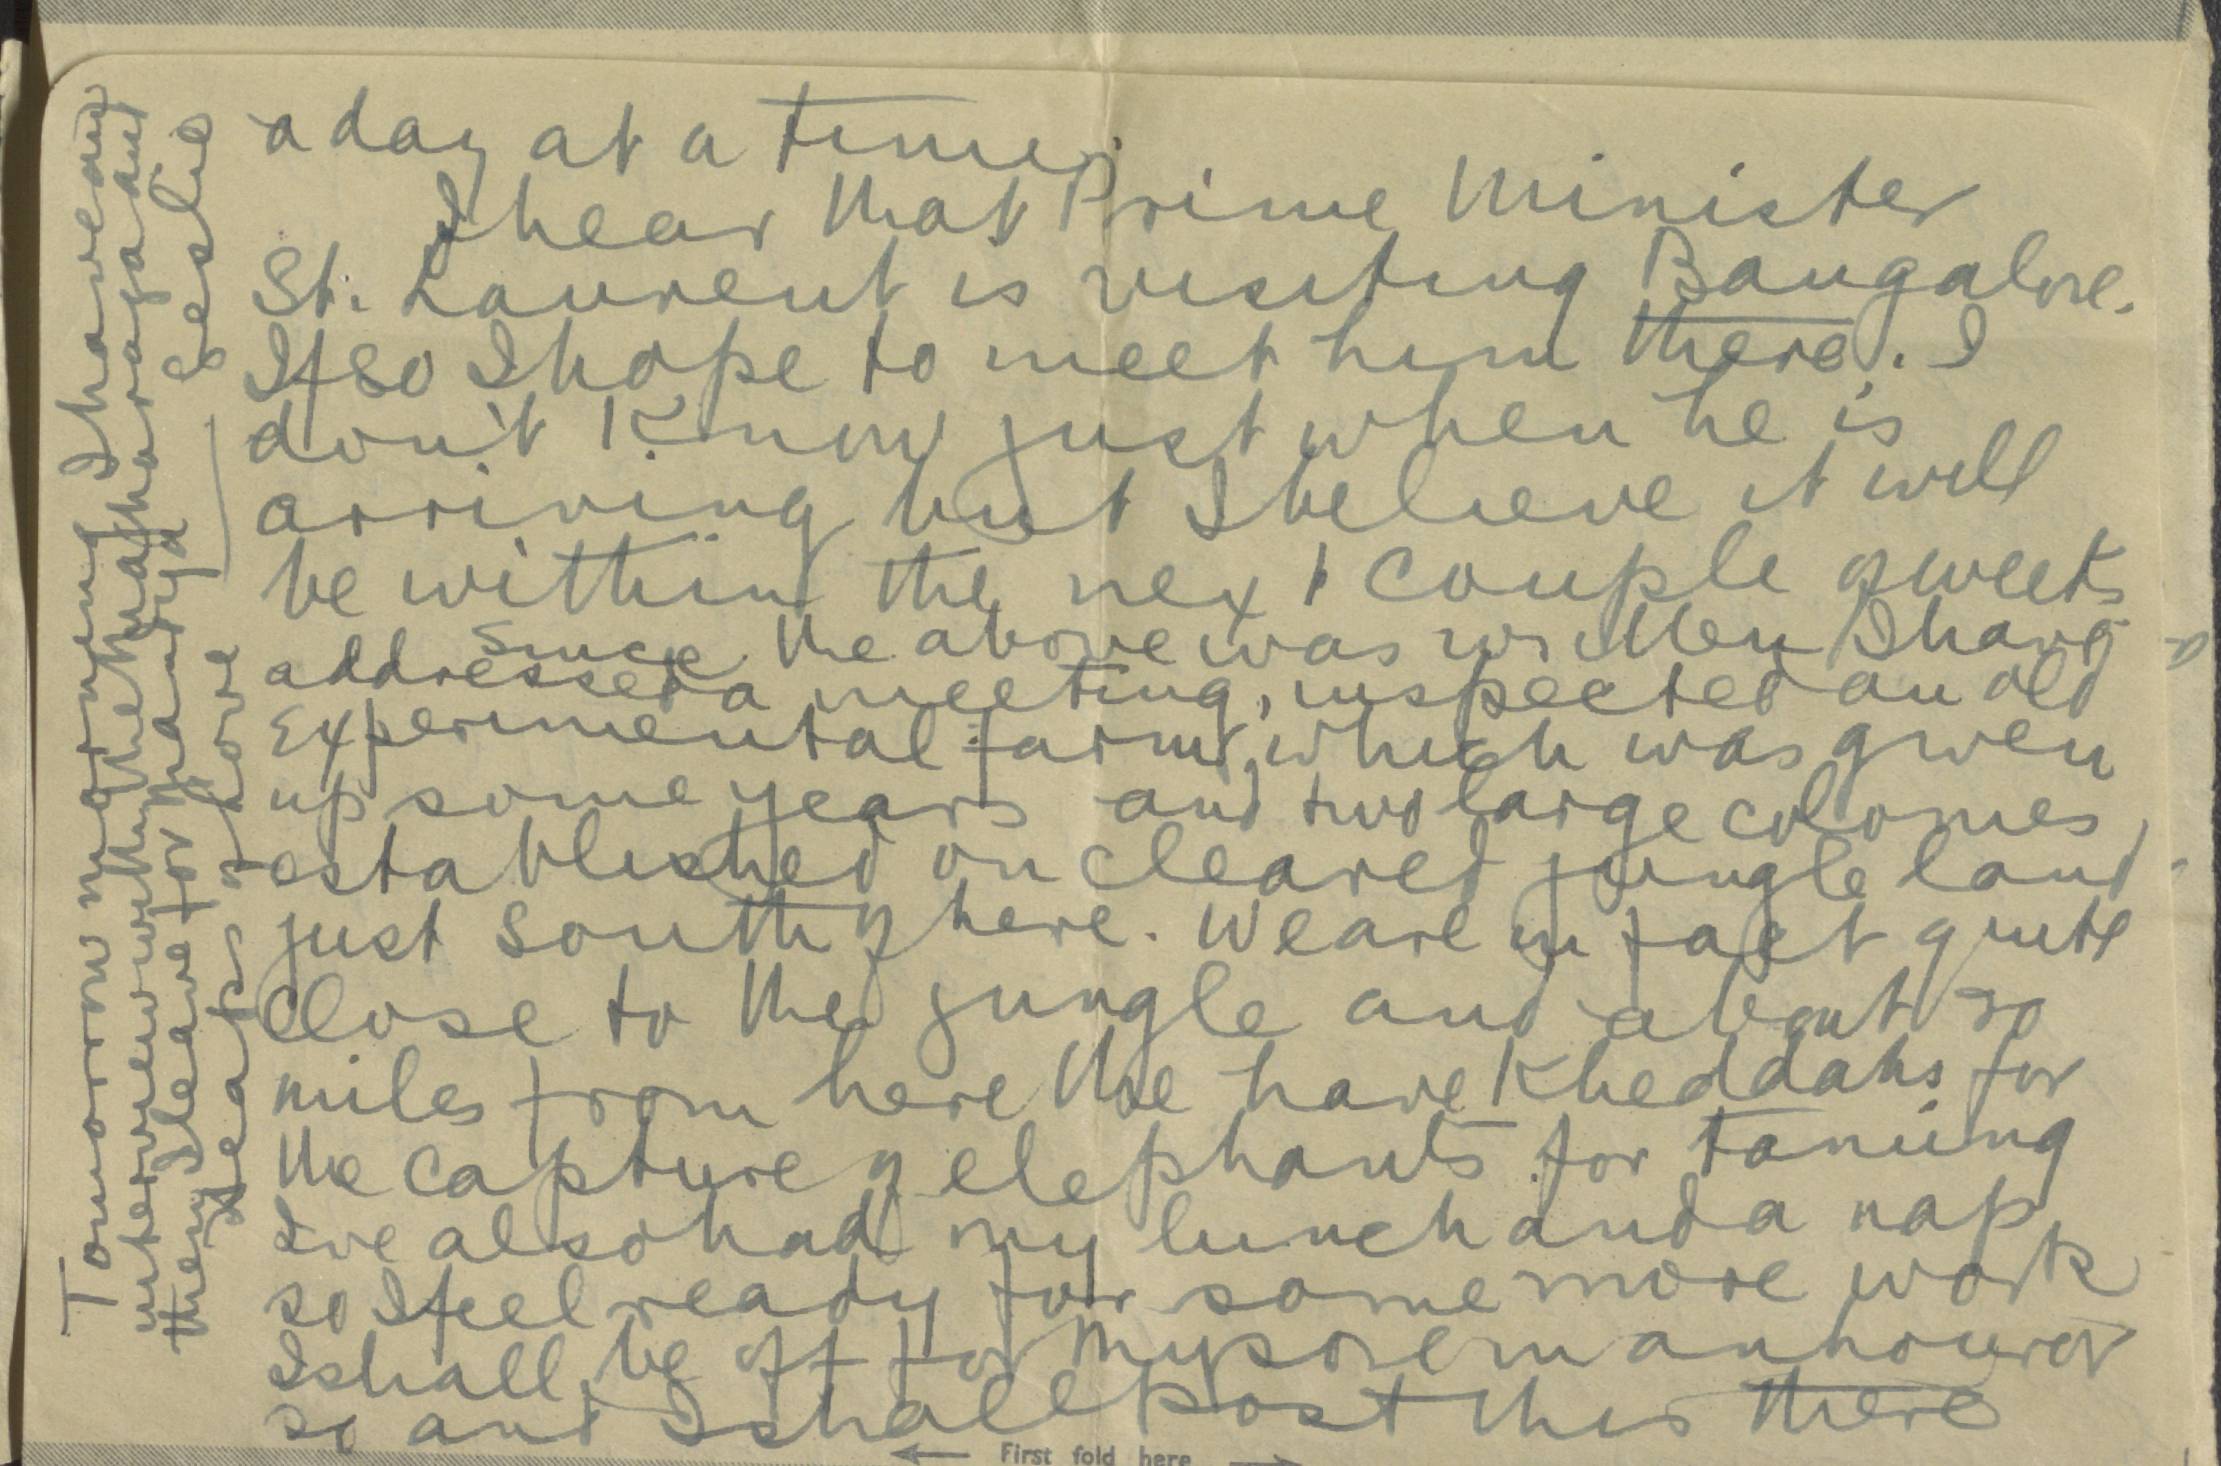 a day at a time.
I hear that Prime Minister
St. Laurent is visiting Bangalore.
If so I hope to meet him there. I
don't know just when he is
arriving but I believe it will
be within the next couple of weeks
Since the above was written I have
addressed a meeting, inspected an old
Experimental farm, which was given
up some years and two large colonies
established on cleared jungle land
just south of here. We are in fact quite
close to the jungle and about 20
miles from here the have Kheddahs for
the capture of elephants for taming
Ive also had my lunch and a nap
so I feel ready for some more work
I shall be off for Mysore in an hour or
so and I shall post this there
Tomorrow morning I have an
interview with the Maharaja and
then I leave for Mandya
Heaps of love
Leslie
First fold here